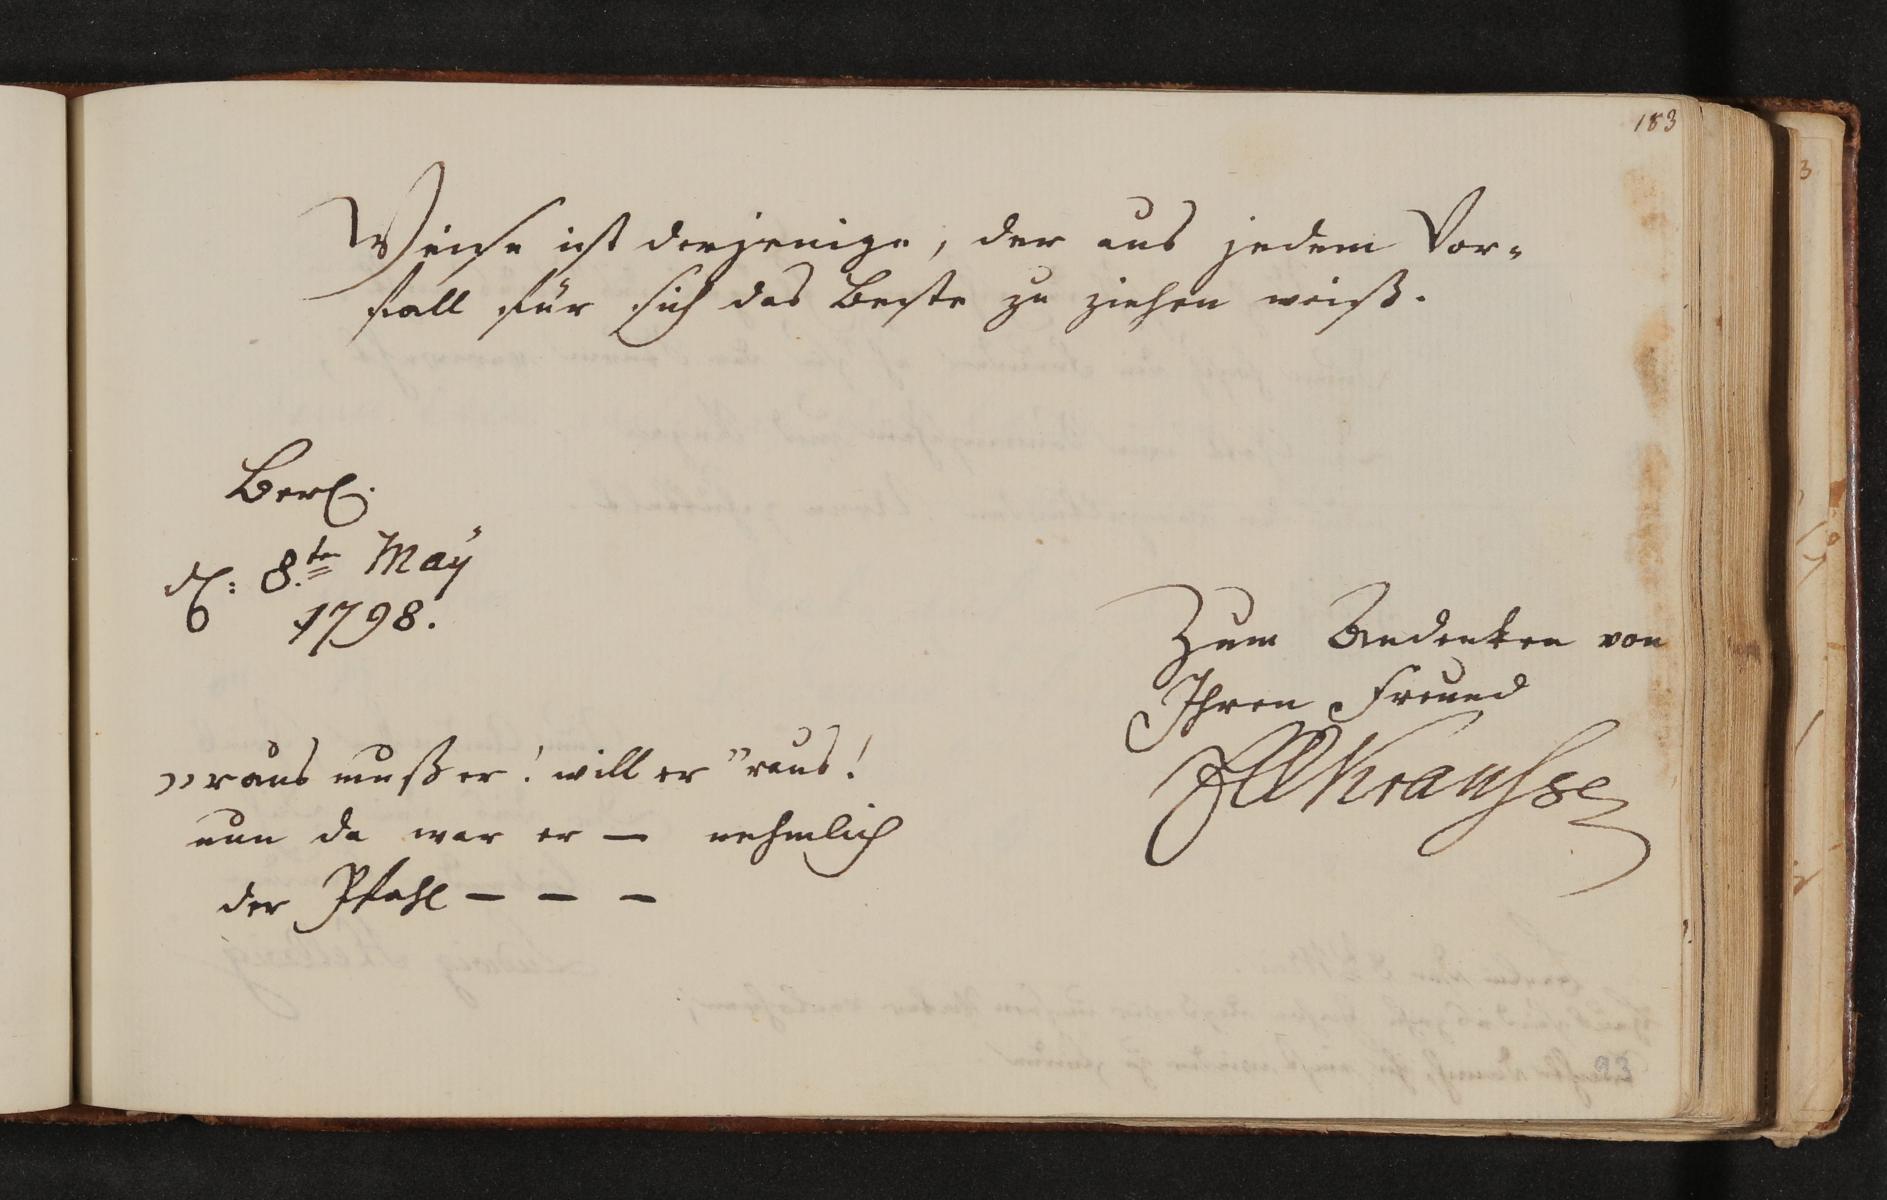 183
Weise ist derjenige, der aus jedem Vor-
fall für sich das Beste zu ziehen weiß.
Berl.
d: 8.ten May
1798.
Zum Andenken von
Ihren Freund
Kraußse
"raus muß er! will er "raus!
nun da war er — nehmlich
der Pfahl — — —
93